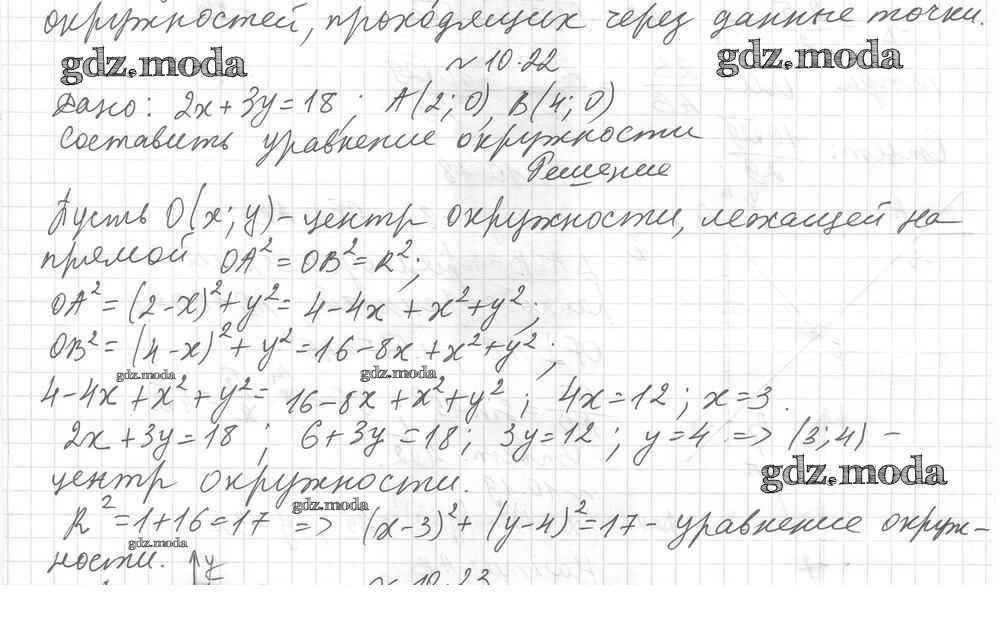 окружностей, проходящих через данные точки.
gdz.moda № 10.22 gdz.moda
Дано: 2x + 3y = 18; A(2; 0), B(4; 0)
Составить уравнение окружности
Решение
Пусть O(x; y) – центр окружности, лежащей на
прямой OA² = OB² = R²;
OA² = (2 - x)² + y² = 4 - 4x + x² + y²;
OB² = (4 - x)² + y² = 16 - 8x + x² + y²;
gdz.moda gdz.moda
4 - 4x + x² + y² = 16 - 8x + x² + y²; 4x = 12; x = 3.
2x + 3y = 18; 6 + 3y = 18; 3y = 12; y = 4 => (3; 4) –
gdz.moda
центр окружности.
gdz.moda
R² = 1 + 16 = 17 => (x - 3)² + (y - 4)² = 17 - уравнение окруж-
gdz.moda
ности. y
№ 10.23